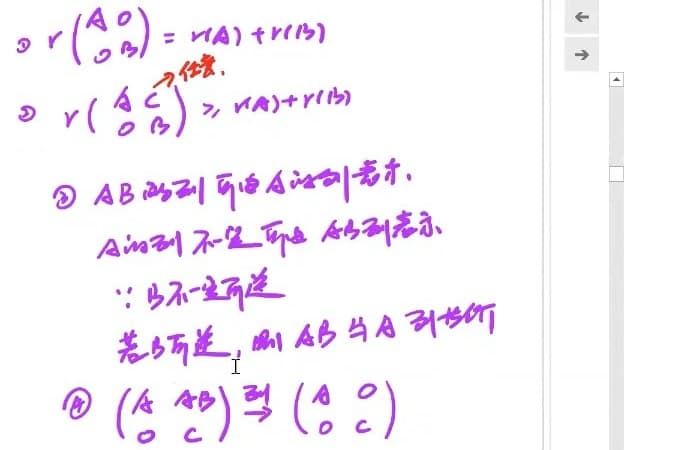 ① r(A O
O B) = r(A) + r(B)
→任意.
② r(A C
O B) ≥ r(A)+r(B)
③ AB的列可由A的列表示.
A的列不一定可由AB列表示
∵B不一定可逆
若B可逆,则AB与A列等价
④ (A AB
O C) 列→ (A O
O C)